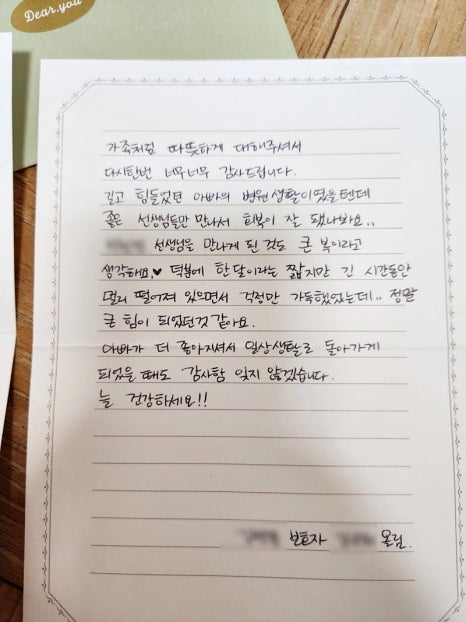 Dear.you
가족처럼 따뜻하게 대해주셔서
다시한번 너무너무 감사드립니다.
길고 힘들었던 아빠의 병원생활이였을텐데
좋은 선생님들만 만나서 회복이 잘 됐나봐요..
선생님을 만나게 된 것도 큰 복이라고
생각해요♥ 덕분에 한달이라는 짧지만 긴 시간동안
멀리 떨어져 있으면서 걱정만 가득했었는데.. 정말
큰 힘이 되었던것 같아요.
아빠가 더 좋아지셔서 일상생활로 돌아가게
되었을 때도 감사함 잊지 않겠습니다.
늘 건강하세요!!
보호자 올림.